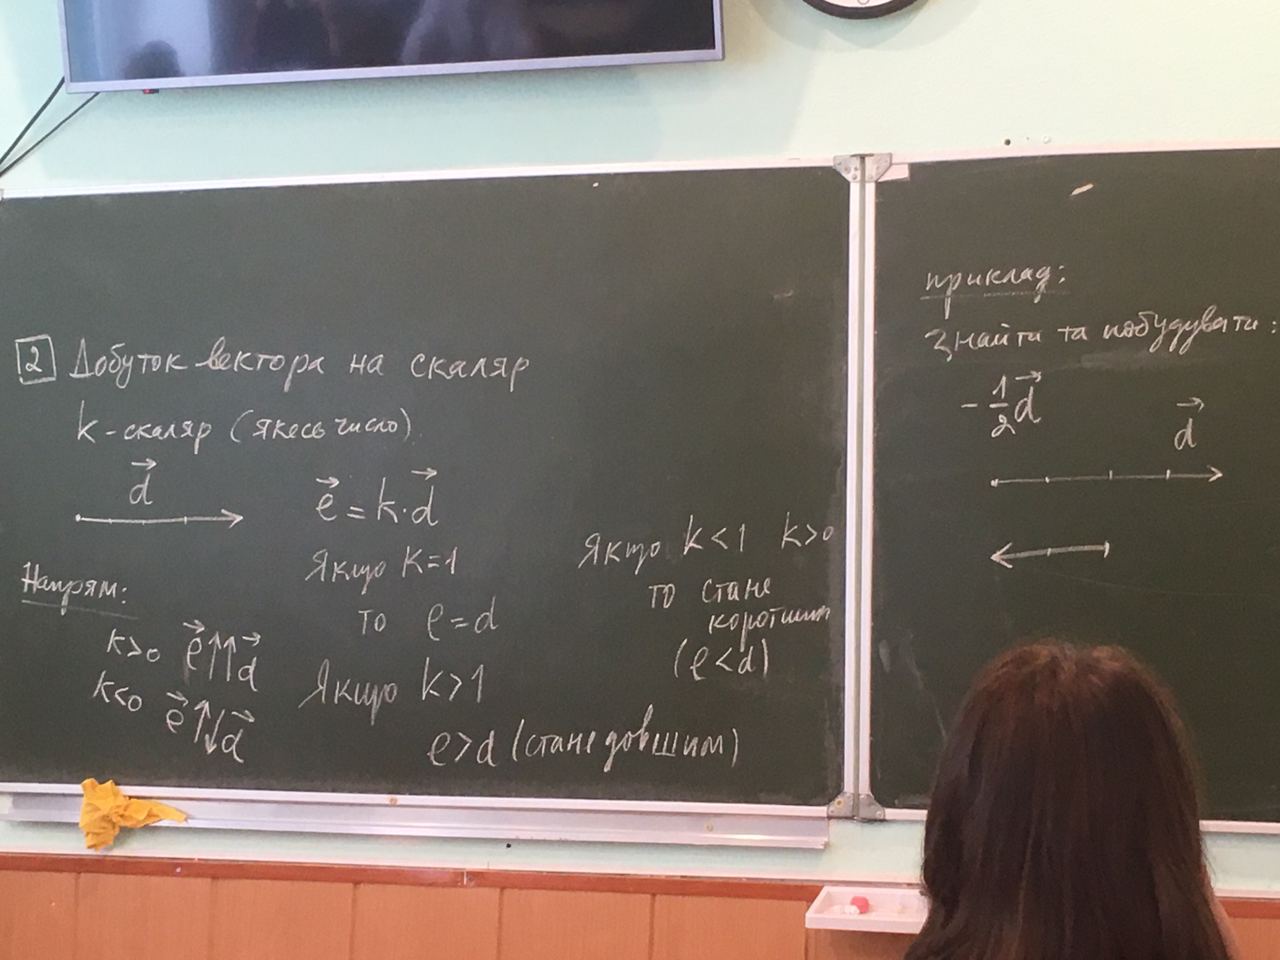 2 Добуток вектора на скаляр
k - скаляр (якесь число)
d⃗
e⃗ = k · d⃗
Напрям:
k>0 e⃗ ↑↑ d⃗
k<0 e⃗ ↑↓ d⃗
Якщо k=1
то e = d
Якщо k>1
e>d (стане довшим)
Якщо k<1 k>0
то стане
коротшим
(e<d)
приклад:
Знайти та побудувати:
-1/2 d⃗
d⃗